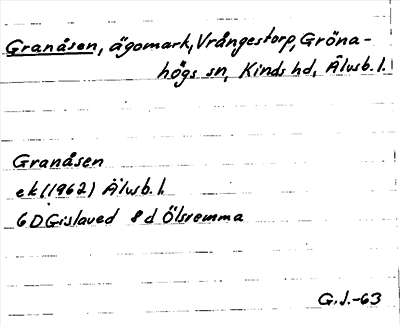 Granåsen, ägomark, Vrångestorp, Gröna-
högs sn, Kinds hd, Älvsb. l.
Granåsen
ek (1962) Älvsb. l.
6D Gislaved 8 d Ölsremma
G.J.-63